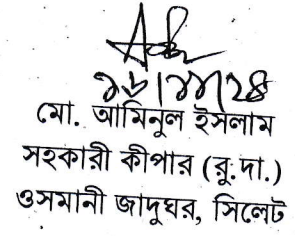 ১৮/১১/২৪
মো. আমিনুল ইসলাম
সহকারী কীপার (রু.দা.)
ওসমানী জাদুঘর, সিলেট